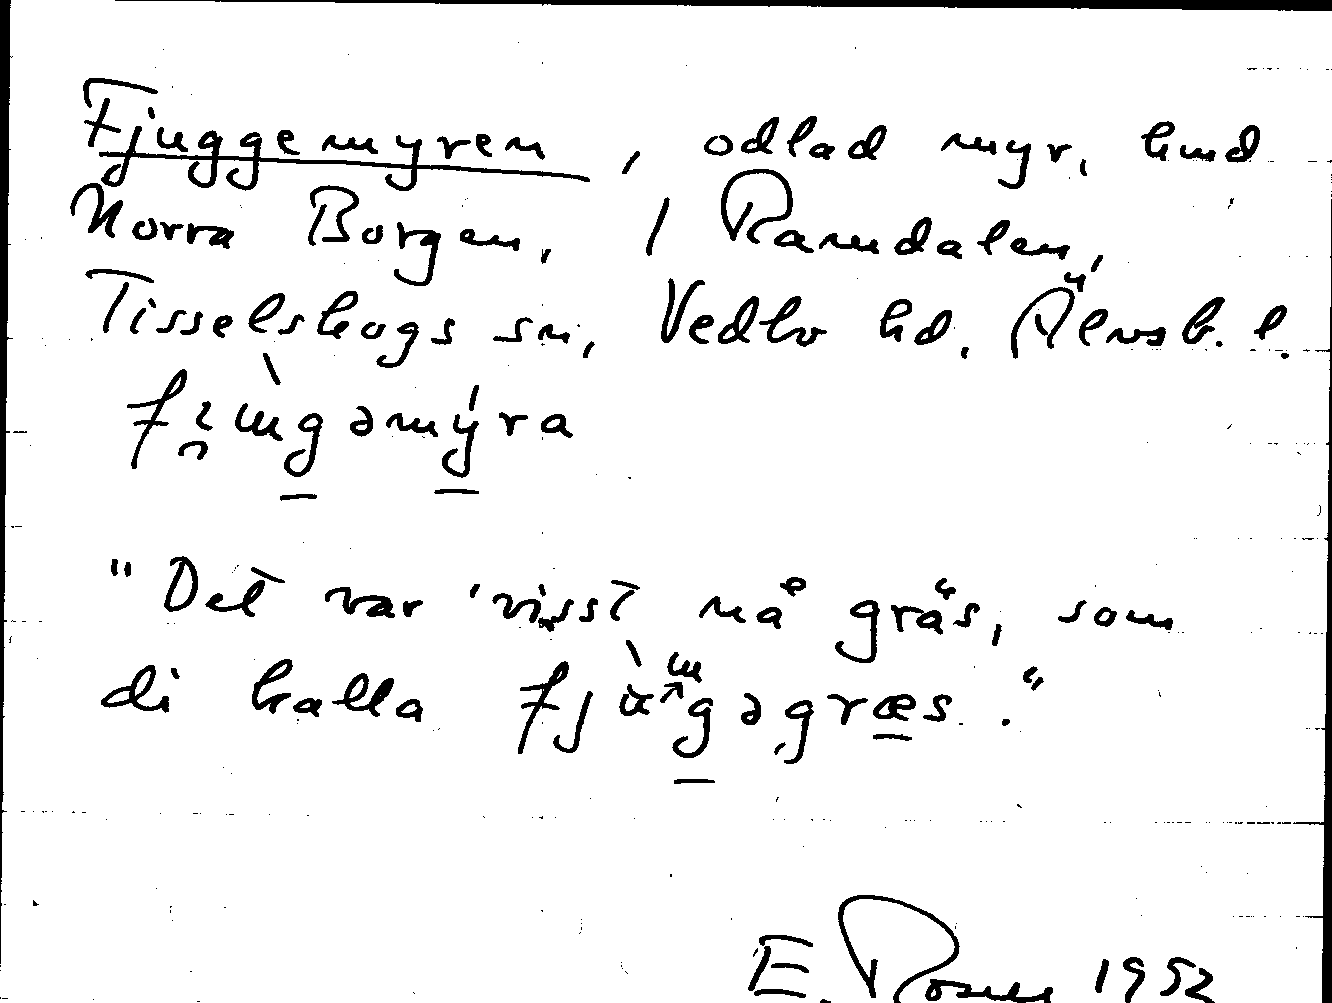 Fjuggemyren, odlad myr, hmd
Norra Borgen, / Ramdalen,
Tisselskogs sn, Vedbo hd. Älvsb. l.
"Det var visst nå gräs, som
di kalla
E. Rosell 1952